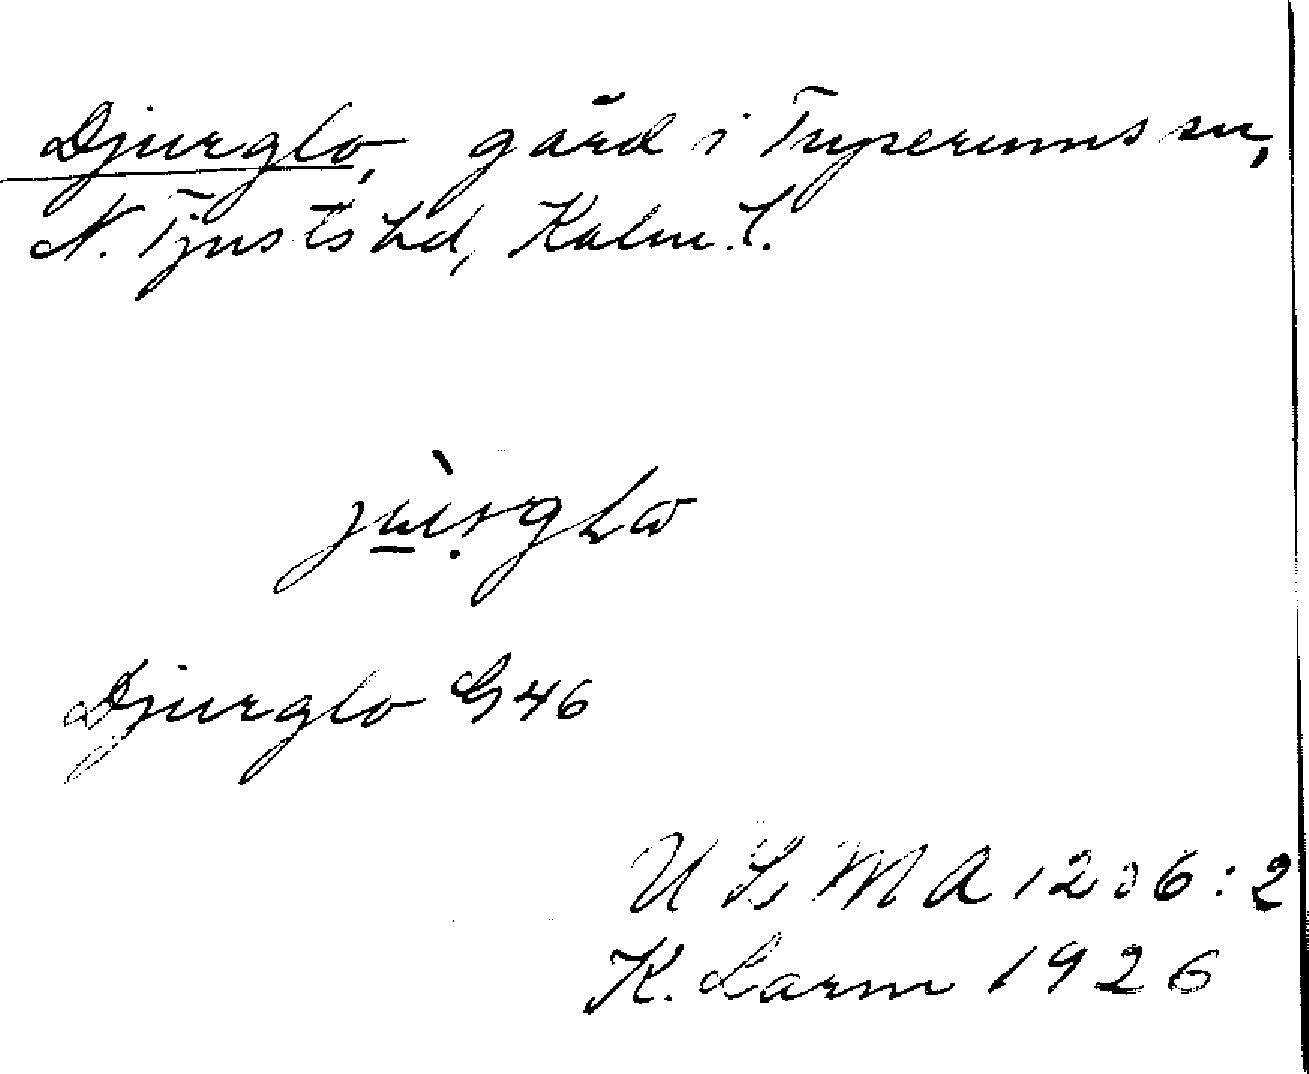 Djurglo, gård i Tryserums sn,
N. Tjusts hd, Kalm. l.
Djurglo G 46
U L M A 1206:2
K. Larm 1926